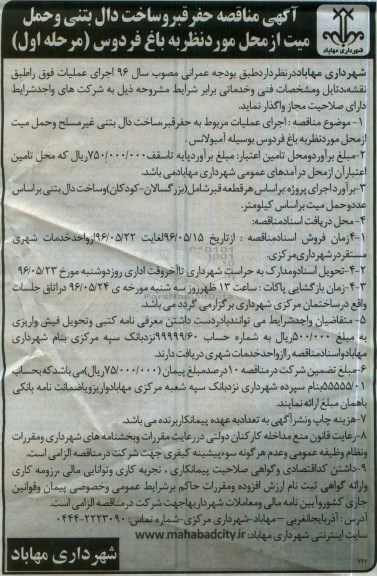 آگهی مناقصه حفر قبر و ساخت دال بتنی و حمل
میت از محل مورد نظر به باغ فردوس (مرحله اول)
شهرداری مهاباد
شهرداری مهاباد در نظر دارد طبق بودجه عمرانی مصوب سال ۹۶ اجرای عملیات فوق را طبق
نقشه، دتایل و مشخصات فنی و خدماتی برابر شرایط مشروحه ذیل به شرکت های واجد شرایط
دارای صلاحیت مجاز واگذار نماید.
۱- موضوع مناقصه : اجرای عملیات مربوط به حفر قبر، ساخت دال بتنی غیر مسلح و حمل میت
از محل مورد نظر به باغ فردوس بوسیله آمبولانس.
۲- مبلغ برآورد و محل تامین اعتبار: مبلغ برآورد پایه تا سقف ۷۵۰/۰۰۰/۰۰۰ ریال که محل تامین
اعتبار آن از محل درآمدهای عمومی شهرداری مهاباد می باشد.
۳- برآورد اجرای پروژه بر اساس هر قطعه قبر شامل (بزرگسالان-کودکان) و ساخت دال بتنی بر اساس
عدد و حمل میت بر اساس کیلومتر.
۴- محل دریافت اسناد مناقصه:
۴-۱ زمان فروش اسناد مناقصه : از تاریخ ۹۶/۰۵/۱۵ لغایت ۹۶/۰۵/۲۲ از واحد خدمات شهری
مستقر در شهرداری مرکزی.
۴-۲- تحویل اسناد و مدارک به حراست شهرداری تا آخر وقت اداری روز دوشنبه مورخ ۹۶/۰۵/۲۳
۴-۳- زمان بازگشایی پاکات : ساعت ۱۳ ظهر روز سه شنبه مورخه ی ۹۶/۰۵/۲۴ در اتاق جلسات
واقع در ساختمان مرکزی شهرداری برگزار می گردد می باشد.
۵- متقاضیان واجد شرایط می توانند با در دست داشتن معرفی نامه کتبی و تحویل فیش واریزی
به مبلغ ۵۰۰/۰۰۰ ریال به شماره حساب ۹۹۹۹۹/۶۰ نزد بانک سپه مرکزی بنام شهرداری
مهاباد و اسناد مناقصه را از واحد خدمات شهری دریافت دارند.
۶- مبلغ تضمین شرکت در مناقصه ۱۰ درصد مبلغ پیمان (۷۵/۰۰۰/۰۰۰ ریال) می باشد که بحساب
۵۵۵۵۵/۰۱ بنام سپرده شهرداری نزد بانک سپه شعبه مرکزی مهاباد واریز و یا ضمانت نامه بانکی
با همان مبلغ ارائه نمایند.
۷- هزینه چاپ و نشر آگهی به تعداد به عهده پیمانکار برنده می باشد.
۸- رعایت قانون منع مداخله کارکنان دولتی در رعایت مقررات و بخشنامه های شهرداری و مقررات
و نظام وظیفه عمومی و عدم هر گونه سوء پیشینه کیفری جهت شرکت در مناقصه الزامی است.
۹- داشتن کد اقتصادی و گواهی صلاحیت پیمانکاری ، تجربه کاری و توانایی مالی و رزومه کاری
و ارائه گواهی ثبت نام ارزش افزوده و مقررات حاکم بر شرایط عمومی و خصوصی پیمان و قوانین
جاری کشور و آیین نامه مالی و معاملات شهرداریها جهت شرکت در مناقصه الزامی است.
آدرس : آذربایجانغربی - مهاباد - شهرداری مرکزی - شماره تماس: ۲۲۲۳۰۹۰-۰۴۴۴
سایت اینترنتی شهرداری مهاباد: www.mahabadcity.ir
شهرداری مهاباد